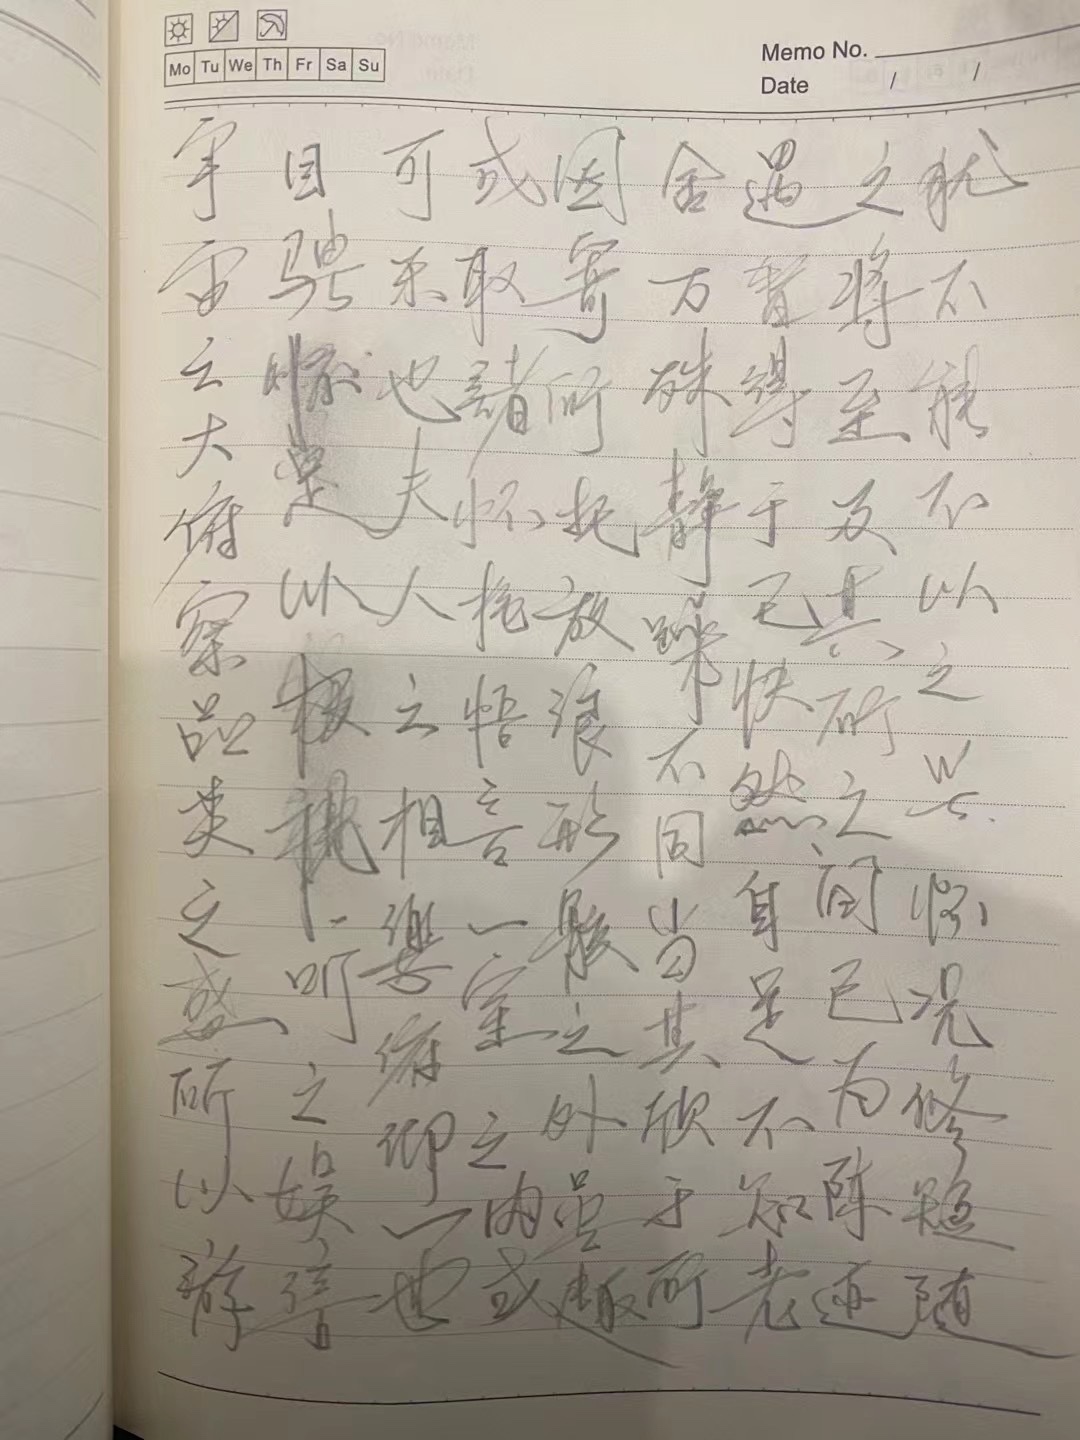 Mo Tu We Th Fr Sa Su
Memo No.
Date / /
宇宙之大俯察品类之盛所以游
目骋怀足以极视听之娱信
可乐也夫人之相與俯仰一世
或取諸怀抱悟言一室之内或
因寄所托放浪形骸之外虽趣
舍万殊静躁不同当其欣于所
遇暂得于己快然自足不知老
之将至及其所之间已为陈迹
犹不能不以之兴怀况修短随